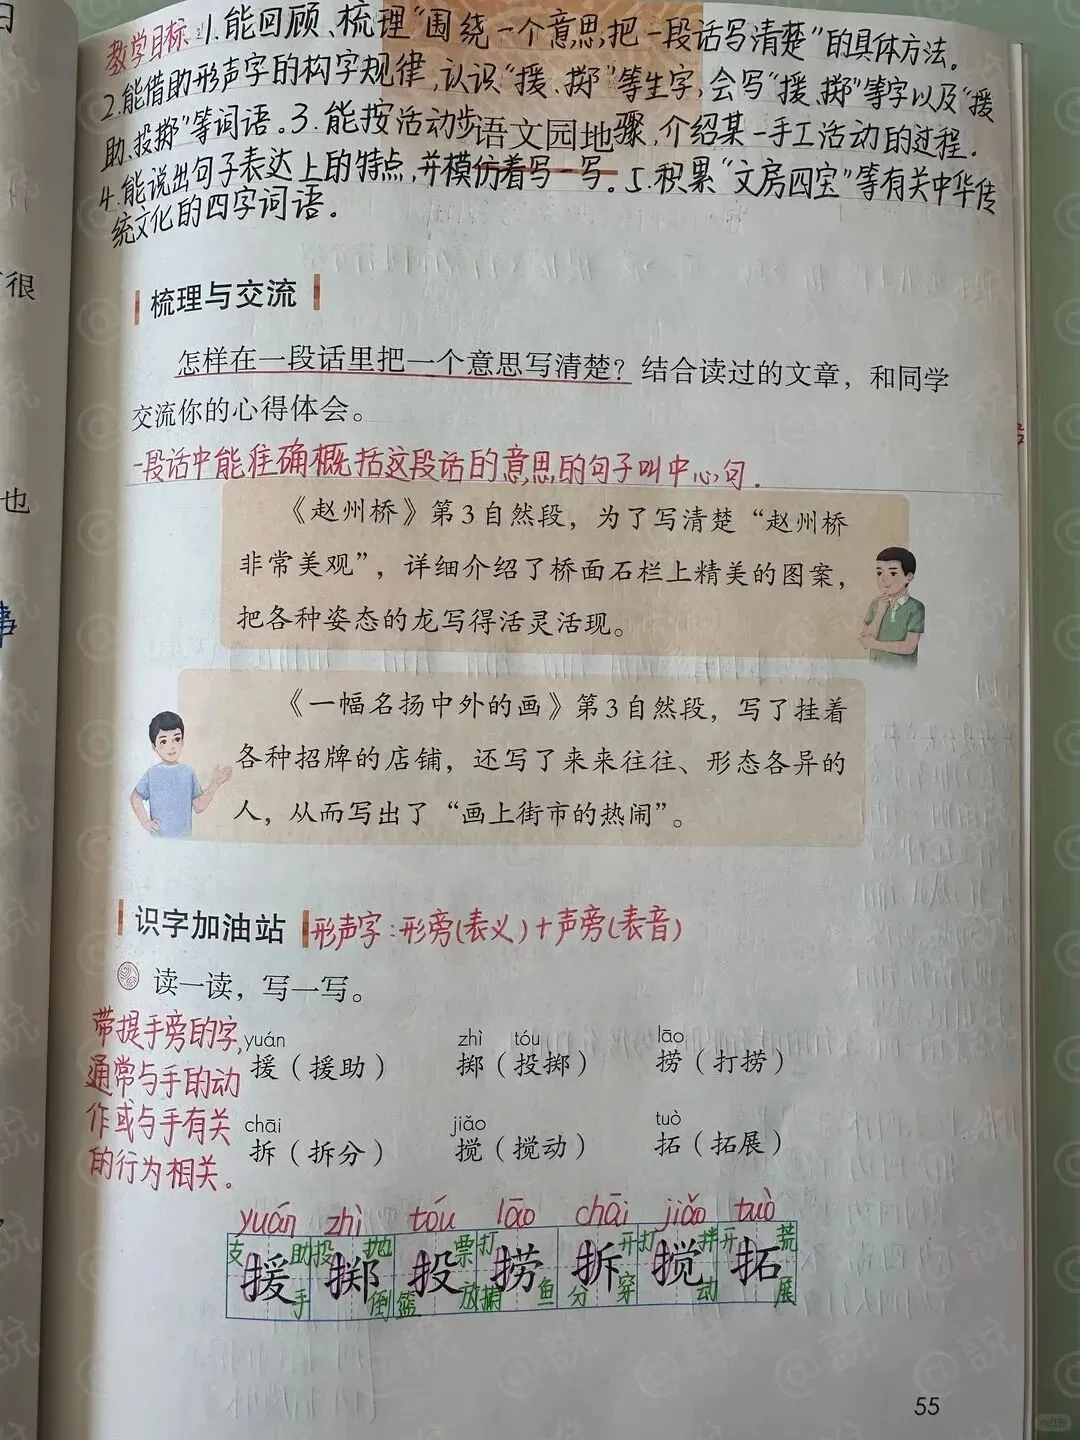 教学目标: 1.能回顾、梳理“围绕一个意思,把一段话写清楚”的具体方法。
2.能借助形声字的构字规律,认识“援、掷”等生字,会写“援、掷”等字以及“援
助、投掷”等词语。3.能按活动步语文园地骤,介绍某一手工活动的过程.
4.能说出句子表达上的特点,并模仿着写一写。5.积累“文房四宝”等有关中华传
统文化的四字词语。
很
梳理与交流
怎样在一段话里把一个意思写清楚?结合读过的文章,和同学
交流你的心得体会。
一段话中能准确概括这段话的意思的句子叫中心句.
也
《赵州桥》第3自然段,为了写清楚“赵州桥
非常美观”,详细介绍了桥面石栏上精美的图案,
把各种姿态的龙写得活灵活现。
《一幅名扬中外的画》第3自然段,写了挂着
各种招牌的店铺,还写了来来往往、形态各异的
人,从而写出了“画上街市的热闹”。
识字加油站 形声字:形旁(表义)+声旁(表音)
读一读,写一写。
带提手旁的字,
通常与手的动
作或与手有关
的行为相关。
yuán zhì tóu lāo
援(援助) 掷(投掷) 捞(打捞)
chāi jiǎo tuò
拆(拆分) 搅(搅动) 拓(拓展)
yuán zhì tóu lāo chāi jiǎo tuò
支 助 投 抛 票 打 开 打 拌 开 荒
援 掷 投 捞 拆 搅 拓
手 倒 篮 放 捕 鱼 分 穿 动 展
55